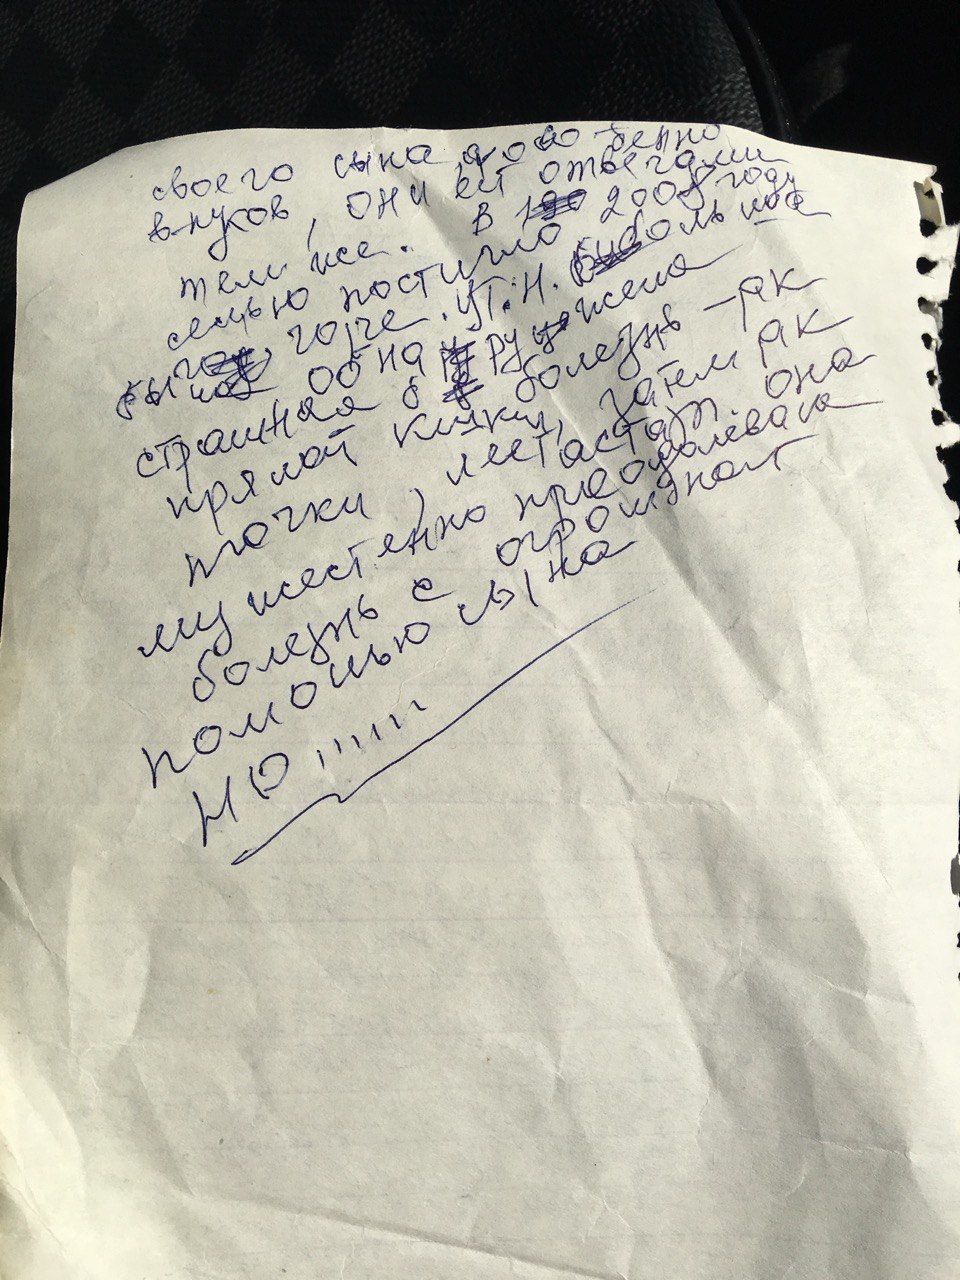 своего сына особенно
внуков, они ей отвечали
тем же. В 2008 году
семью постигло большое
горе. У Т.Н. была
обнаружена
страшная болезнь - рак
прямой кишки, затем рак
почки, метастаз. она
мужестенно преодолевала
болезнь с огромной
помощью сына
НО !!!!!!